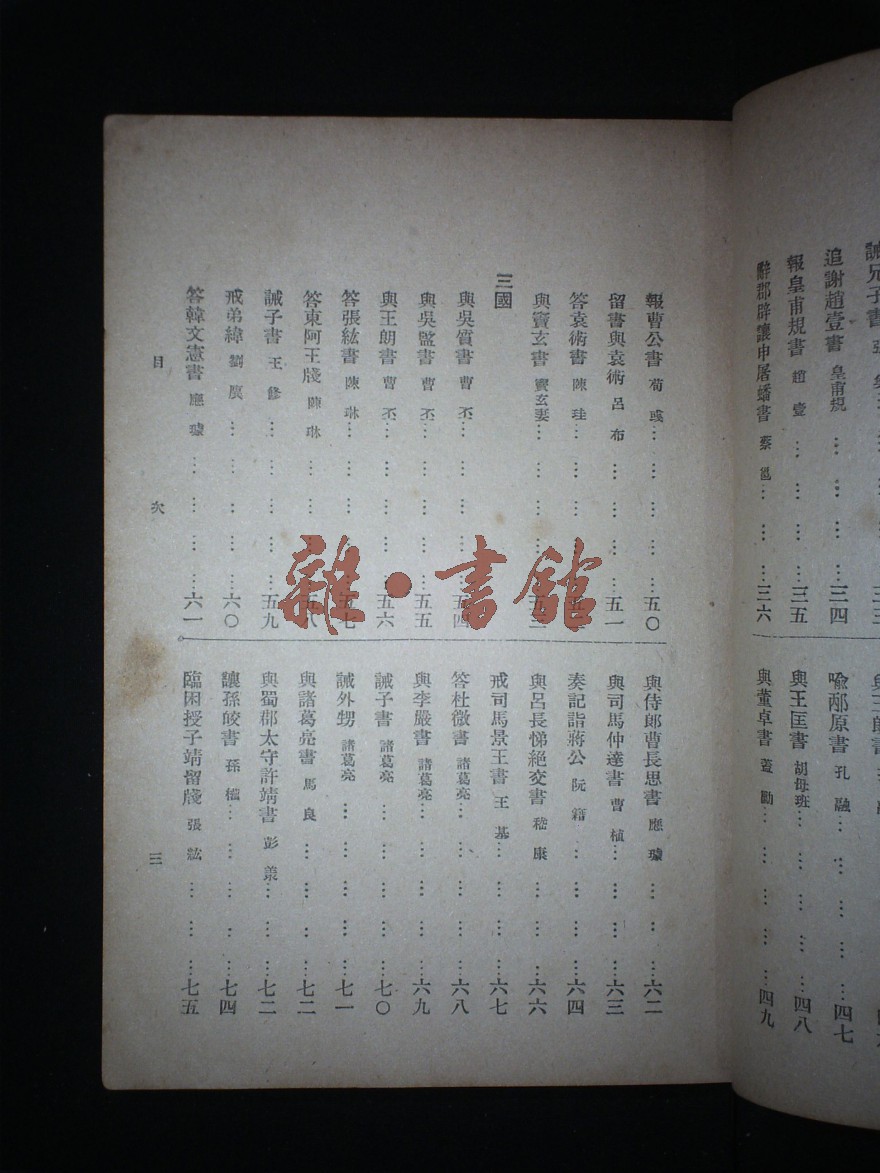 追謝趙壹書 皇甫規……三四
報皇甫規書 趙壹……三五
辭郡辟讓申屠蟠書 蔡邕……三六
喩邴原書 孔融……四七
與王匡書 胡母班……四八
與董卓書 蓋勳……四九
報曹公書 荀彧……五〇
留書與袁術 呂布……五一
答袁術書 陳珪……
與竇玄書 竇玄妻……
三國
與吳質書 曹丕……五四
與吳監書 曹丕……五五
與王朗書 曹丕……五六
答張紘書 陳琳……五七
答東阿王牋 陳琳……五八
誡子書 王修……五九
戒弟緯 劉廙……六〇
答韓文憲書 應璩……六一
與侍郎曹長思書 應璩……六二
與司馬仲達書 曹植……六三
奏記詣蔣公 阮籍……六四
與呂長悌絕交書 嵇康……六六
戒司馬景王書 王基……六七
答杜微書 諸葛亮……六八
與李嚴書 諸葛亮……六九
誡子書 諸葛亮……七〇
誡外甥 諸葛亮……七一
與諸葛亮書 馬良……七二
與蜀郡太守許靖書 彭羕……七二
讓孫皎書 孫權……七四
臨困授子靖留牋 張紘……七五
目次
三
雜·書館